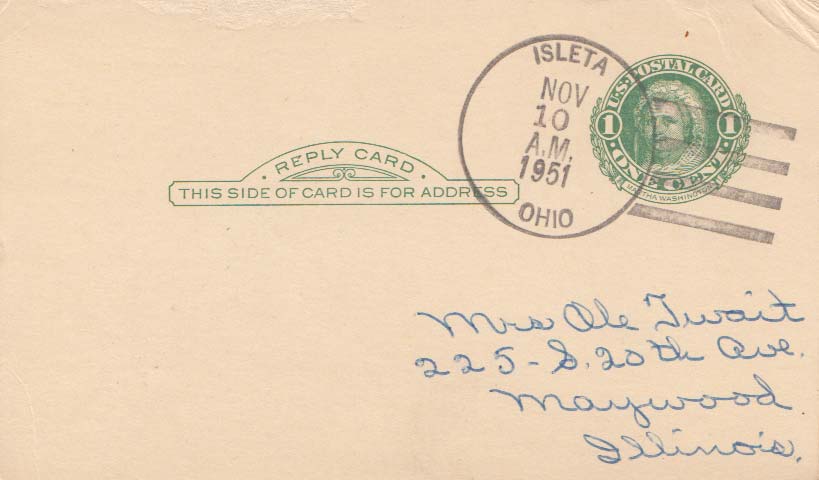 ISLETA
NOV
10
A.M.
1951
OHIO
U.S. POSTAL CARD
1 1
ONE CENT
MARTHA WASHINGTON
· REPLY CARD ·
THIS SIDE OF CARD IS FOR ADDRESS
Mrs Ole Twait
225 - S. 20th Ave.
Maywood
Illinois.